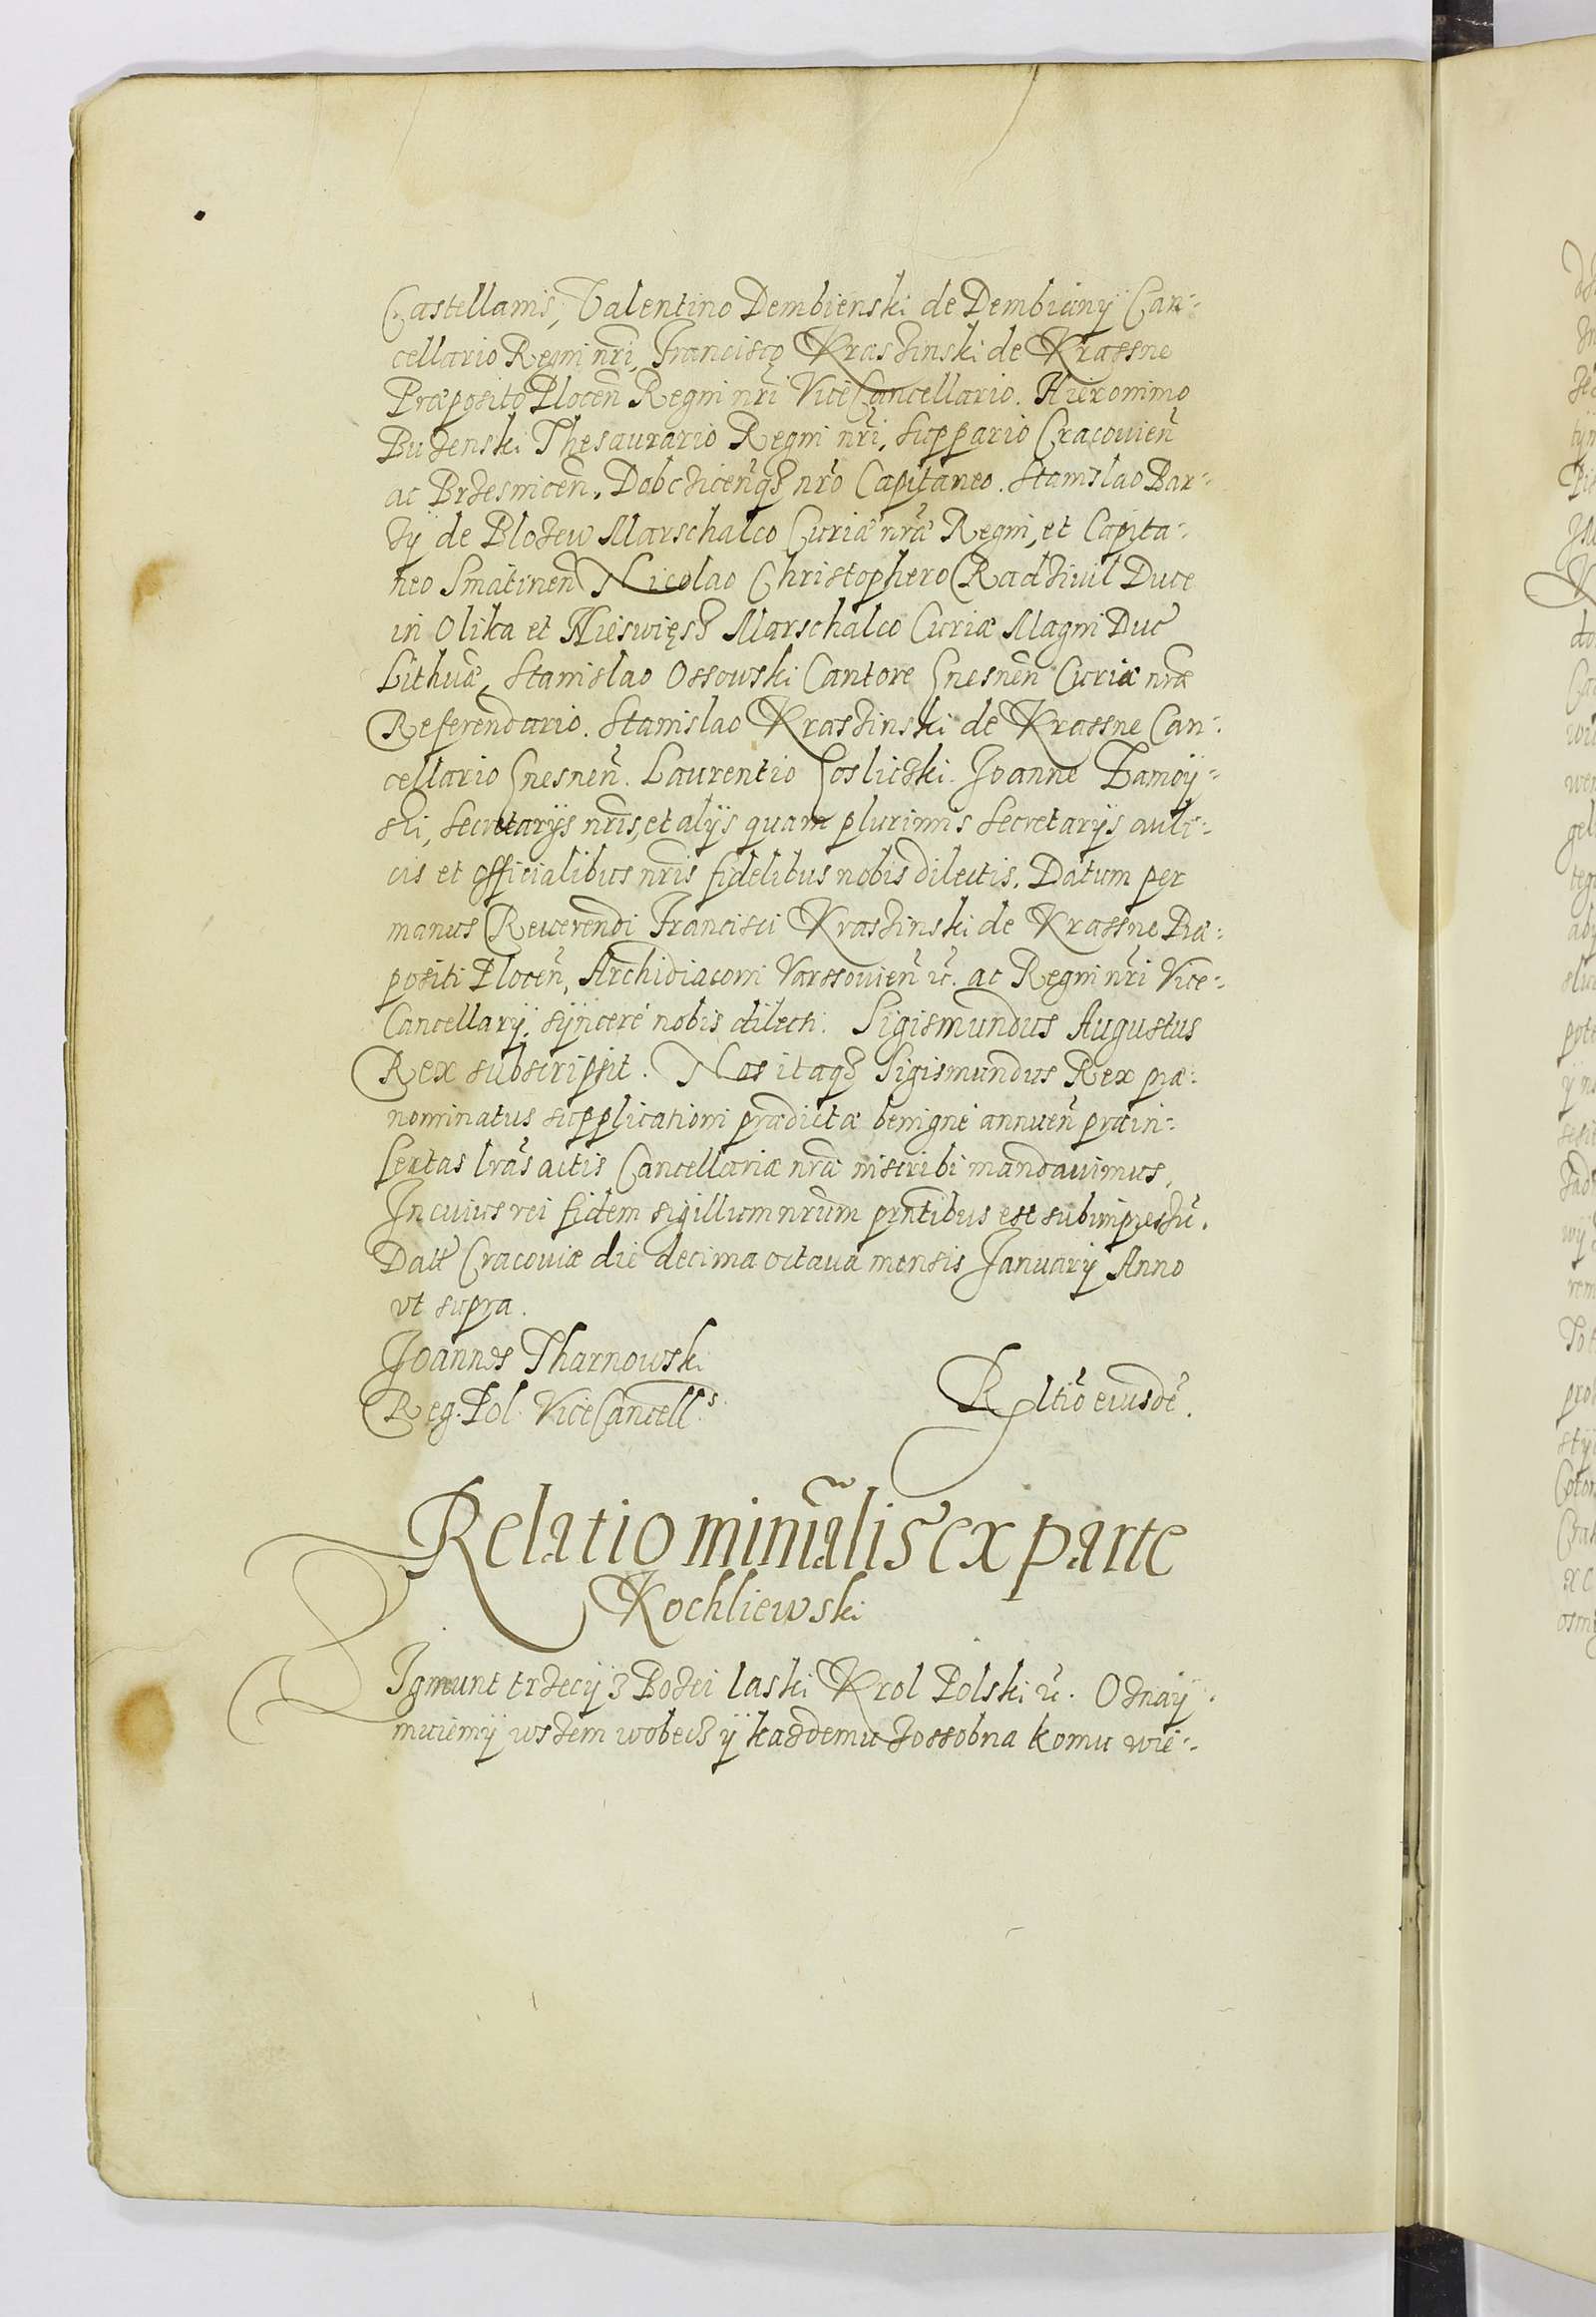 Castellanis, Valentino Dembienski de Dembiany Can-
cellario Regni nrĩ, Francisco Kraszinski de Krassne
Præposito Plocen̄ Regni nrĩ ViceCancellario. Hieronimo
Buzenski Thesaurario Regni nrĩ, Suppario Cracouien̄
ac Brzesnicen̄, Dobczicen̄q₃ nrõ Capitaneo. Stanislao Bar-
zÿ de Blozew Marschalco Curiæ nrǣ Regni, et Capita-
neo Sniatinen̄ Nicolao Christophero Radziuil Duce
in Olika et Nieswięsz Marschalco Curiæ Magni Duc̃
Lithuæ̃, Stanislao Ossowski Cantore Gnesnen̄ Curiæ nrǣ
Referendario. Stanislao Kraszinski de Krassne Can-
cellario Gnesnen̄. Laurentio Gosliczki. Joanne Zamoÿ-
ski, Secretarÿs nrĩs, et alÿs quam plurimis Secretarÿs, auli-
cis et officialibus nrĩs fidelibus nobis dilectis. Datum per
manus Reuerendi Francisci Kraszinski de Krassne Præ-
positi Plocen̄, Archidiaconi Varssouien̄ ⁊c̃. ac Regni nrĩ Vice-
Cancellarÿ, sÿncerè nobis dilecti. Sigismundus Augustus
Rex subscripsit. Nos itaq₃ Sigismundus Rex præ-
nominatus supplicationi prædictæ benignè annuen̄ præin-
sertas lrãs actis Cancellariæ nrǣ inscribi mandauimus.
In cuius rei fidem sigillum nrũm prñtibus est subimpressũ.
Datt̃ Cracouiæ die decima octaua mensis Januarÿ Anno
vt supra.
Joannes Tharnowski
Reg. Pol. ViceCancell.s
Rltiõ eiusdẽ.
Relatio miniãlis ex parte
Kochliewski
Zÿgmunt trzecÿ z Bozei laski Krol Polski ⁊c̃. Oznaÿ-
muiemÿ wszem wobecz ÿ kazdemu zossobna komu wie-